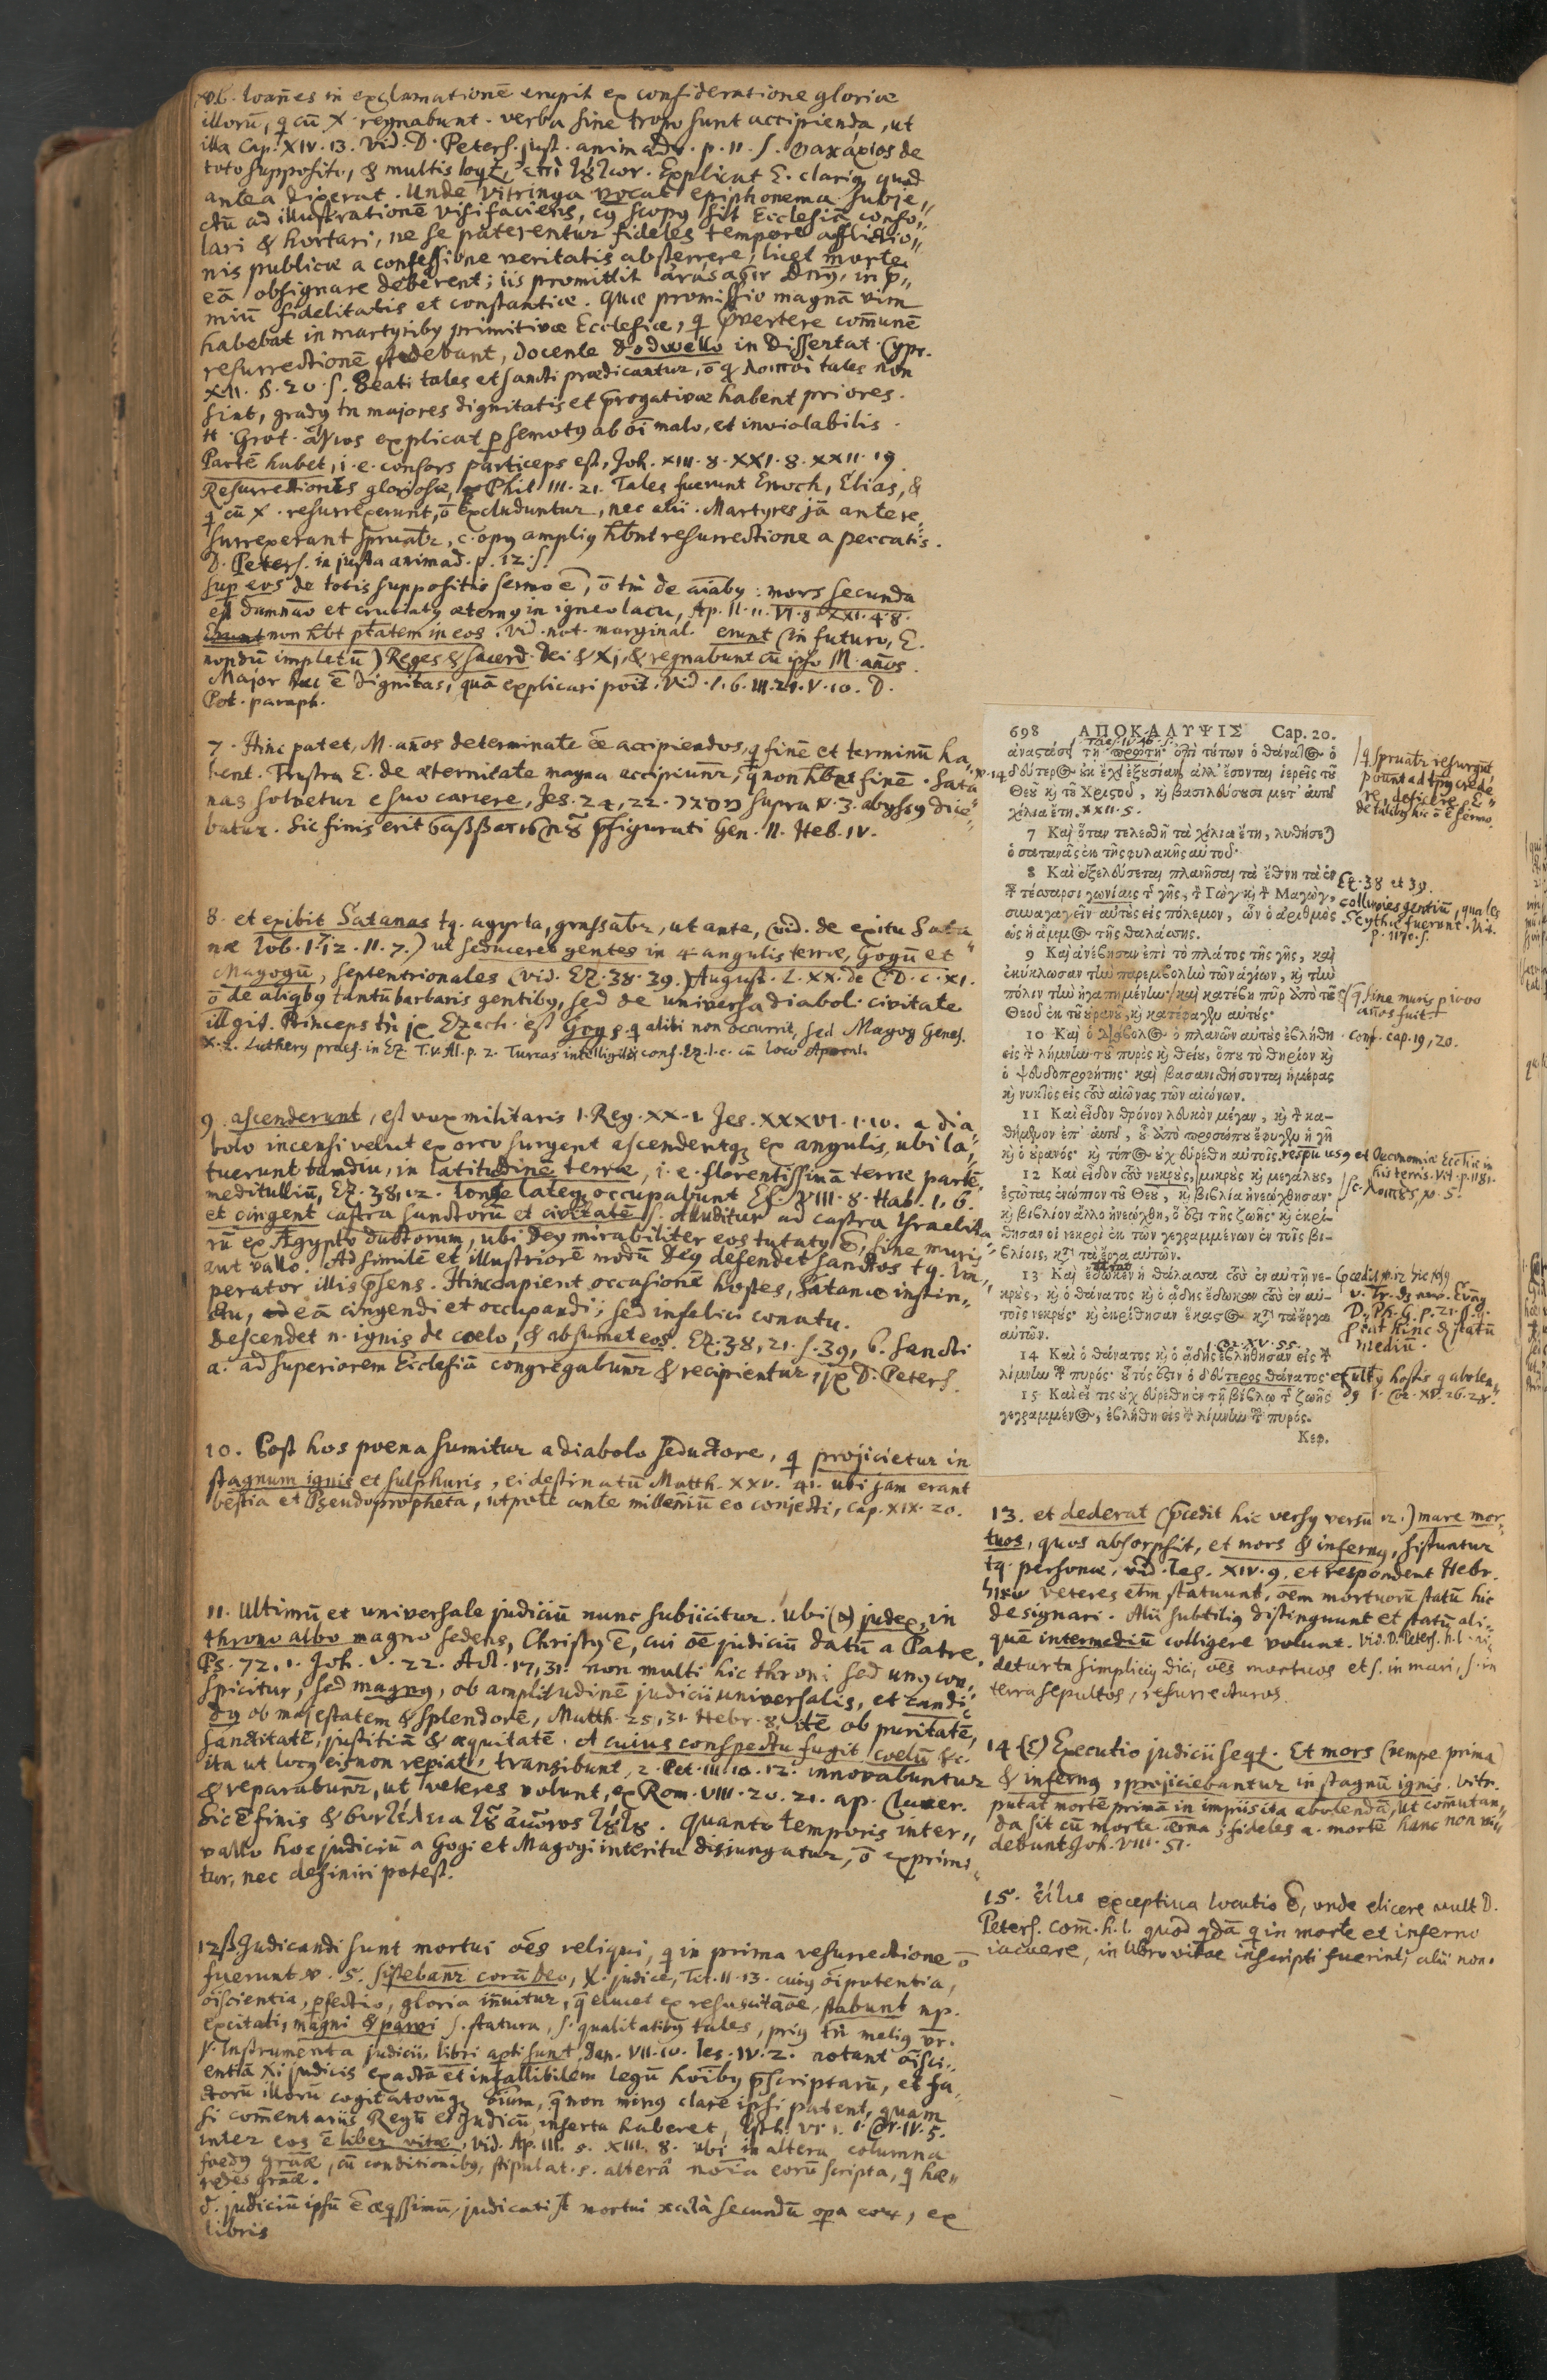 v.6. Ioan̄es in exclamationē erupit ex consideratione gloriæ
illorū, q cū X. regnabunt. verba sine tropo sunt accipienda, ut
illa Cap. XIV. 13. Vid. D. Peters. just. animadv. p. 11. s. μακάριος de
toto supposito, & multis Explicat E. clariq quod
antea dixerat. Unde Vitringa vocat epiphonema subje„
ctū ad illustrationē visi faciens, cq scopq sit Ecclesiā conso„
lari & hortari, ne se paterentur fideles tempore afflictio„
nis publicæ a confessione veritatis absterrere, licet morte
eā obsignare deberent; iis promittit in p̄„
miū fidelitatis et constantiæ. Quæ promissio magnā vim
habebat in martyribq primitivæ Ecclesiæ, q p̄vertere com̄unē
resurrectionē studebant, docente Dodwello in Dissertat. Cypr.
XII. §. 20. s. Beati tales et sancti prædicantur, ō q λοιποὶ tales non
sint, gradq tn majores dignitatis et p̄rogativæ habent priores.
H. Grot. ἅγιος explicat p semotq ab oī malo, et inviolabilis.
Partē habet, i. e. consors particeps est, Joh. XIII. 8. XXI. 8. XXII. 19.
Resurrectiones gloriosæ, Phil. III. 21. Tales fuerunt Enoch, Elias, &
q cū X. resurrexerunt, ō excluduntur, nec alii. Martyres jā antere„
surrexerant spruatr, c. opq ampliq hb̄nt resurrectione a peccatis.
D. Peters. in justa animad. p. 12. s.
sup eos de totis suppositis sermo ē, ō tm̄ de aīabq: mors secunda
est damnāo et cruciatq æternq in igneo lacu, Ap. II. 11. VI. 8. XXI. 4. 8.
non hb̄t p̄tatem in eos. Vid. not. marginal. erunt (in futuro, E.
nondū impletū) Reges & sacerd. Dei & Xi, & regnabunt cū ipso M. an̄os.
Major hæc ē dignitas, quā explicari poīt. Vid. I. 6. III. 21. V. 10. D.
Pet. paraph.
7. Hinc patet, M. an̄os determinate ēe accipiendos, q finē et terminū ha„
bent. Frustra E. de æternitate magna accipiunr, q̄ non hb̄nt finē. Sata„
nas solvetur e suo carcere, Jes. 24, 22. supra v. 3. abyssq dice„
batur. Sic finis erit p̄figurati Gen. II. Heb. IV.
8. et exibit Satanas tq. agyrta, grassatr, ut ante, (vid. de exitu Sata„
næ Iob. I. 12. II. 7.) ut seduceret gentes in 4 angulis terræ, Gogū et
Magogū, septentrionales (vid. Ez. 38. 39.) August. L. XX. de C. D. c. XI.
ō de aliqbq tantū barbaris gentibq, sed de universa diaboli civitate
illgit. Princeps tn̄ jx Ezech. est Gog, q alibi non occurrit, sed Magog Genes.
X. 2. Lutherq præf. in Ez. T. V. Al. p. 2. Turcas intelligit, conf. Ez. l. c. cū loco Apocal.
9. ascenderunt, est vox militaris 1. Reg. XX. 1. Jes. XXXVI. 1. 10. a dia„
bolo incensi velut ex orco surgent ascendentq; ex angulis, ubi la„
tuerunt tamdiu, in latitudinē terræ, i. e. florentissimā terræ partē,
meditulliū, Ez. 38, 12. longe lateq; occupabunt Es. VIII. 8. Hab. 1. 6.
et cingent castra sanctorū et civitatē s. alluditur ad castra Israelita„
rū ex Ægypto ductorum, ubi Deq mirabiliter eos tutatq ē, sine muris
aut vallo. Ad similē et illustriorē modū Deq defendet sanctos tq. Im„
perator illis p̄sens. Hinc capient occasionē hostes, Satanæ instin„
ctu, eā cingendi et occupandi; sed infelici conatu.
descendet n. ignis de coelo, & absumet eos. Ez. 38, 21. s. 39, 6. sancti
a. ad superiorem Ecclesiā congregabunr & recipientur, jx D. Peters.
10. Post hos poena sumitur a diabolo seductore, q projicietur in
stagnum ignis et sulphuris, ei destinatū Matth. XXV. 41. ubi jam erant
bestia et Pseudopropheta, utpote ante milleniū eo conjecti, Cap. XIX. 20.
11. Ultimū et universale judiciū nunc subjicitur. Ubi (α) judex, in
throno albo magno sedens, Christq ē, cui oē judiciū datū a Patre,
Ps. 72, 1. Joh. V. 22. Act. 17, 31. non multi hic throni sed unq con„
spicitur, sed magnq, ob amplitudinē judicii universalis, et candi„
dq ob majestatem & splendorē, Matth. 25, 31. Hebr. 8, itē ob puritatē,
sanctitatē, justitiā & æquitatē. A cuius conspectu fugit coelū &c.
ita ut locq eis non repiatr, transibunt, 2. Pet. III. 10. 12. innovabuntur
& reparabunr, ut veteres volunt, ex Rom. VIII. 20. 21. ap. Cluver.
Sic ē finis & συντέλεια Quanto temporis inter„
vallo hoc judiciū a Gogi et Magogi interitu disjungatur, ō exprimi„
tur, nec definiri potest.
12. β. Judicandi sunt mortui oēs reliqui, q in prima resurrectione ō
fuerunt v. 5. sistebanr corā Deo, X. judice, Tit. II. 13. cuiq oīpotentia,
oīscientia, p̄fectio, gloria in̄uitur, q̄ elucet ex resuscitāoe, stabunt np.
excitati, magni & parvi s. statura, s. qualitatibq tales, priq tn̄ meliq vr.
γ. Instrumenta judicii, libri apti sunt, Dan. VII. 10. Ies. IV. 2. notant oīsci„
entiā Xi judicis exactā et infallibilem legū hoībq p̄scriptarū, et fa„
ctorū illorū cogitatorūq; oīum, q̄ non minq clare ipsi patent, quam
si com̄entariis Regū et Judicū inserta haberet, Esth. VI. 1. 1. Cor. IV. 5.
inter eos ē liber vitæ, vid. Ap. III. 5. XIII. 8. ubi in altera columna
foedq grāæ, cū conditionibq, stipulat. s. alterā noīa eorū scripta, q hæ„
redes grāæ.
δ. judiciū ipsū ē æqssimū, judicati st mortui κατὰ secundū opa eor, ex
libris
698 ΑΠΟΚΑΛΥΨΙΣ Cap. 20.
ἀναστάσει τῇ πρώτῃ· ἐπὶ τούτων ὁ θάνατος ὁ
δεύτερος οὐκ ἔχει ἐξουσίαν, ἀλλ' ἔσονται ἱερεῖς τοῦ
Θεοῦ καὶ τοῦ Χριστοῦ, καὶ βασιλεύσουσι μετ' αὐτοῦ
χίλια ἔτη. XXII. 5.
7 Καὶ ὅταν τελεσθῇ τὰ χίλια ἔτη, λυθήσεται
ὁ σατανᾶς ἐκ τῆς φυλακῆς αὑτοῦ·
8 Καὶ ἐξελεύσεται πλανῆσαι τὰ ἔθνη τὰ ἐν
ταῖς τέσσαρσι γωνίαις τῆς γῆς, τὸν Γὼγ καὶ τὸν Μαγὼγ,
συναγαγεῖν αὐτοὺς εἰς πόλεμον, ὧν ὁ ἀριθμὸς
ὡς ἡ ἄμμος τῆς θαλάσσης.
9 Καὶ ἀνέβησαν ἐπὶ τὸ πλάτος τῆς γῆς, καὶ
ἐκύκλωσαν τὴν παρεμβολὴν τῶν ἁγίων, καὶ τὴν
πόλιν τὴν ἠγαπημένην· καὶ κατέβη πῦρ ἀπὸ τοῦ
Θεοῦ ἐκ τοῦ οὐρανοῦ, καὶ κατέφαγεν αὐτούς·
10 Καὶ ὁ διάβολος ὁ πλανῶν αὐτοὺς ἐβλήθη
εἰς τὴν λίμνην τοῦ πυρὸς καὶ θείου, ὅπου τὸ θηρίον καὶ
ὁ ψευδοπροφήτης· καὶ βασανισθήσονται ἡμέρας
καὶ νυκτὸς εἰς τοὺς αἰῶνας τῶν αἰώνων.
11 Καὶ εἶδον θρόνον λευκὸν μέγαν, καὶ τὸν κα-
θήμενον ἐπ' αὐτοῦ, οὗ ἀπὸ προσώπου ἔφυγεν ἡ γῆ
καὶ ὁ οὐρανός· καὶ τόπος οὐχ εὑρέθη αὐτοῖς.
12 Καὶ εἶδον τοὺς νεκροὺς, μικροὺς καὶ μεγάλους,
ἑστῶτας ἐνώπιον τοῦ Θεοῦ, καὶ βιβλία ἠνεῴχθησαν·
καὶ βιβλίον ἄλλο ἠνεῴχθη, ὅ ἐστι τῆς ζωῆς· καὶ ἐκρί-
θησαν οἱ νεκροὶ ἐκ τῶν γεγραμμένων ἐν τοῖς βι-
βλίοις, κατὰ τὰ ἔργα αὐτῶν.
13 Καὶ ἔδωκεν ἡ θάλασσα τοὺς ἐν αὑτῇ νε-
κροὺς, καὶ ὁ θάνατος καὶ ὁ ᾅδης ἔδωκαν τοὺς ἐν αὑ-
τοῖς νεκρούς· καὶ ἐκρίθησαν ἕκαστος κατὰ τὰ ἔργα
αὑτῶν.
1. Cor. XV. 55.
14 Καὶ ὁ θάνατος καὶ ὁ ᾅδης ἐβλήθησαν εἰς τὴν
λίμνην τοῦ πυρός· οὗτός ἐστιν ὁ δεύτερος θάνατος·
15 Καὶ εἴ τις οὐχ εὑρέθη ἐν τῇ βίβλῳ τῆς ζωῆς
γεγραμμένος, ἐβλήθη εἰς τὴν λίμνην τοῦ πυρός.
Κεφ.
q spruatr resurgūt,
pount ad tpq crede„
re, deficere. E.
de talibq hic ō ē sermo.
Ez. 38 et 39.
colluvies gentiū, quales
Scythæ fuerunt. Vit.
p. 1170. s.
q sine muris p 1000
an̄os fuit.
conf. cap. 19, 20.
respu usq et Oeconomiæ Eccliæ in
his terris. Vit. p. 1181.
sc. λοιποὺς, v. 5.
p̄cedit v. 12 hic v.
D. Ph. G. p. 21. sqq.
Hinc statū
mediū.
et ultq hostis q abolen„
dq 1. Cor. XV. 26. 28.
13. et dederat (p̄cedit hic versq versū 12.) mare mor„
tuos, quos absorpsit, et mors & infernq, sistuntur
tq. personæ, vid. Ies. XIV. 9. et respondent Hebr.
veteres etm̄ statuunt, oēm mortuorū statū hic
designari. Alii subtiliq distinguunt et statū ali„
quē intermediū colligere volunt. Vid. D. Peters. h. l. vi„
detur tn simpliciq dici, oēs mortuos et s. in mari, s. in
terra sepultos, resurrecturos.
14. (ε) Executio judicii seqr. Et mors (nempe prima)
& infernq, projiciebantur in stagnū ignis. Vitr.
putat mortē primā in impiis ita abolendā, ut com̄utan„
da sit cū morte æterna; fideles a. mortē hanc non vi„
debunt Joh. VIII. 51.
15. Εἴ τις exceptiva locutio ē, unde elicere vult D.
Peters. com̄. h. l. quod qdā q in morte et inferno
iacuere, in libro vitæ inscripti fuerint, alii non.